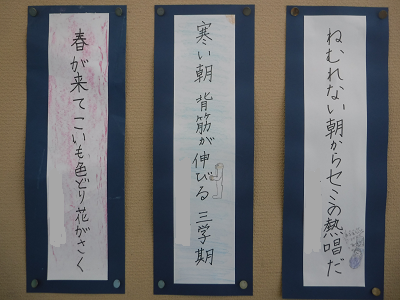 ねむれない朝からセミの熱唱だ
寒い朝 背筋が伸びる 三学期
春が来てこいも色どり花がさく